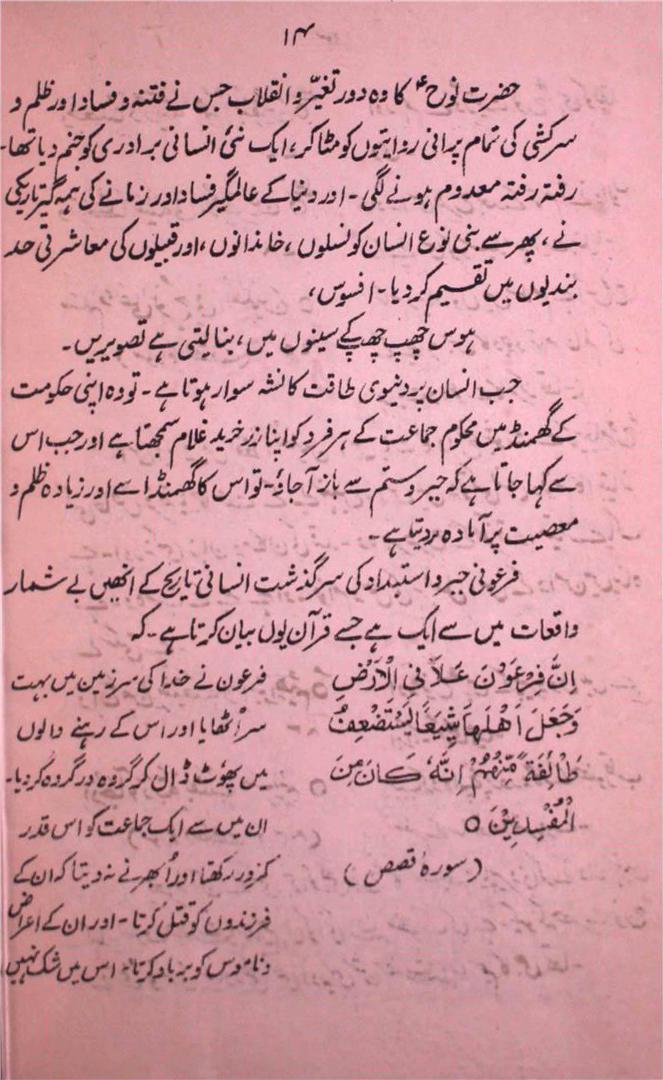 ۱۴
حضرت نوحؑ کا وہ دور تغیّر و انقلاب جس نے فتنہ و فساد اور ظلم و
سرکشی کی تمام پرانی روایتوں کو مٹا کر، ایک نئی انسانی برادری کو جنم دیا تھا۔
رفتہ رفتہ معدوم ہونے لگی ۔ اور دنیا کے عالمگیر فساد اور زمانے کی ہمہ گیر تاریکی
نے، پھر سے بنی نوع انسان کو نسلوں، خاندانوں، اور قبیلوں کی معاشرتی حد
بندیوں میں تقسیم کر دیا ۔ افسوس،
ہوس چھپ چھپ کے سینوں میں، بنا لیتی ہے تصویریں۔
جب انسان پر دنیوی طاقت کا نشہ سوار ہوتا ہے ۔ تو وہ اپنی حکومت
کے گھمنڈ میں محکوم جماعت کے ہر فرد کو اپنا زر خرید غلام سمجھتا ہے اور جب اس
سے کہا جاتا ہے کہ جبر و ستم سے باز آ جاؤ ۔ تو اس کا گھمنڈ اسے اور زیادہ ظلم و
معصیت پر آمادہ کر دیتا ہے ۔
فرعونی جبر و استبداد کی سرگذشت انسانی تاریخ کے انھیں بے شمار
واقعات میں سے ایک ہے جسے قرآن یوں بیان کرتا ہے ۔ کہ
اِنَّ فِرْعَوْنَ عَلَا فِی الْاَرْضِ
وَجَعَلَ اَهْلَهَا شِيَعًا يَّسْتَضْعِفُ
طَائِفَةً مِّنْهُمْ اِنَّهٗ كَانَ مِنَ
الْمُفْسِدِيْنَ ○
(سورۂ قصص)
فرعون نے خدا کی سرزمین میں بہت
سر اُٹھایا اور اس کے رہنے والوں
میں پھوٹ ڈال کر گروہ در گروہ کر دیا۔
ان میں سے ایک جماعت کو اس قدر
کمزور رکھتا اور اُبھرنے نہ دیتا کہ ان کے
فرزندوں کو قتل کرتا ۔ اور ان کے اعراض
و ناموس کو برباد کرتا تھا اس میں شک نہیں